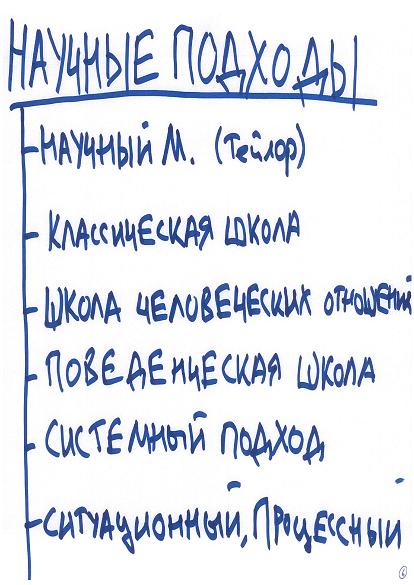 НАУЧНЫЕ ПОДХОДЫ
- НАУЧНЫЙ М. (Тейлор)
- КЛАССИЧЕСКАЯ ШКОЛА
- ШКОЛА ЧЕЛОВЕЧЕСКИХ ОТНОШЕНИЙ
- ПОВЕДЕНЧЕСКАЯ ШКОЛА
- СИСТЕМНЫЙ ПОДХОД
- СИТУАЦИОННЫЙ, ПРОЦЕССНЫЙ